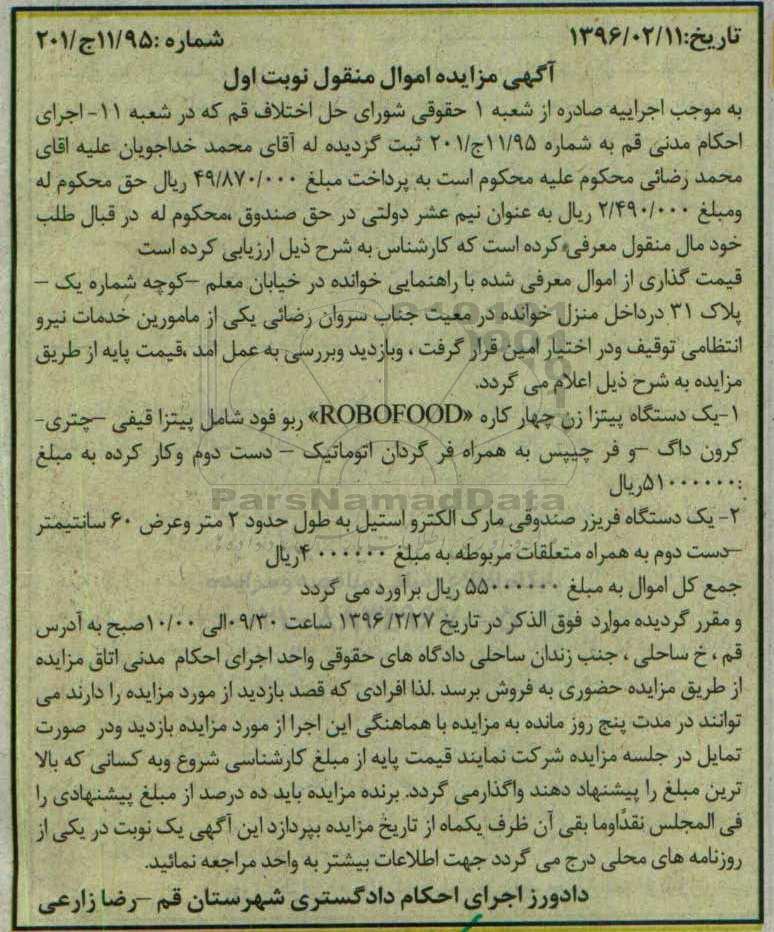 تاریخ:۱۳۹۶/۰۲/۱۱ شماره :۱۱/۹۵ج/۲۰۱
آگهی مزایده اموال منقول نوبت اول
به موجب اجراییه صادره از شعبه ۱ حقوقی شورای حل اختلاف قم که در شعبه ۱۱- اجرای
احکام مدنی قم به شماره ۱۱/۹۵ج/۲۰۱ ثبت گردیده له آقای محمد خداجویان علیه اقای
محمد رضائی محکوم علیه محکوم است به پرداخت مبلغ ۴۹/۸۷۰/۰۰۰ ریال حق محکوم له
ومبلغ ۲/۴۹۰/۰۰۰ ریال به عنوان نیم عشر دولتی در حق صندوق ،محکوم له در قبال طلب
خود مال منقول معرفی کرده است که کارشناس به شرح ذیل ارزیابی کرده است
قیمت گذاری از اموال معرفی شده با راهنمایی خوانده در خیابان معلم –کوچه شماره یک –
پلاک ۳۱ درداخل منزل خوانده در معیت جناب سروان رضائی یکی از مامورین خدمات نیرو
انتظامی توقیف ودر اختیار امین قرار گرفت ، وبازدید وبررسی به عمل امد ،قیمت پایه از طریق
مزایده به شرح ذیل اعلام می گردد.
۱-یک دستگاه پیتزا زن چهار کاره «ROBOFOOD» ربو فود شامل پیتزا قیفی –چتری-
کرون داگ –و فر چیپس به همراه فر گردان اتوماتیک – دست دوم وکار کرده به مبلغ
:۵۱۰۰۰۰۰۰ریال
ParsNamadData
۲- یک دستگاه فریزر صندوقی مارک الکترو استیل به طول حدود ۲ متر وعرض ۶۰ سانتیمتر
–دست دوم به همراه متعلقات مربوطه به مبلغ ۴۰۰۰۰۰۰ریال
جمع کل اموال به مبلغ ۵۵۰۰۰۰۰۰ ریال برآورد می گردد
و مقرر گردیده موارد فوق الذکر در تاریخ ۱۳۹۶/۲/۲۷ ساعت ۰۹/۳۰الی ۱۰/۰۰صبح به آدرس
قم ، خ ساحلی ، جنب زندان ساحلی دادگاه های حقوقی واحد اجرای احکام مدنی اتاق مزایده
از طریق مزایده حضوری به فروش برسد .لذا افرادی که قصد بازدید از مورد مزایده را دارند می
توانند در مدت پنج روز مانده به مزایده با هماهنگی این اجرا از مورد مزایده بازدید ودر صورت
تمایل در جلسه مزایده شرکت نمایند قیمت پایه از مبلغ کارشناسی شروع وبه کسانی که بالا
ترین مبلغ را پیشنهاد دهند واگذارمی گردد. برنده مزایده باید ده درصد از مبلغ پیشنهادی را
فی المجلس نقداًوما بقی آن ظرف یکماه از تاریخ مزایده بپردازد این آگهی یک نوبت در یکی از
روزنامه های محلی درج می گردد جهت اطلاعات بیشتر به واحد مراجعه نمائید.
دادورز اجرای احکام دادگستری شهرستان قم –رضا زارعی